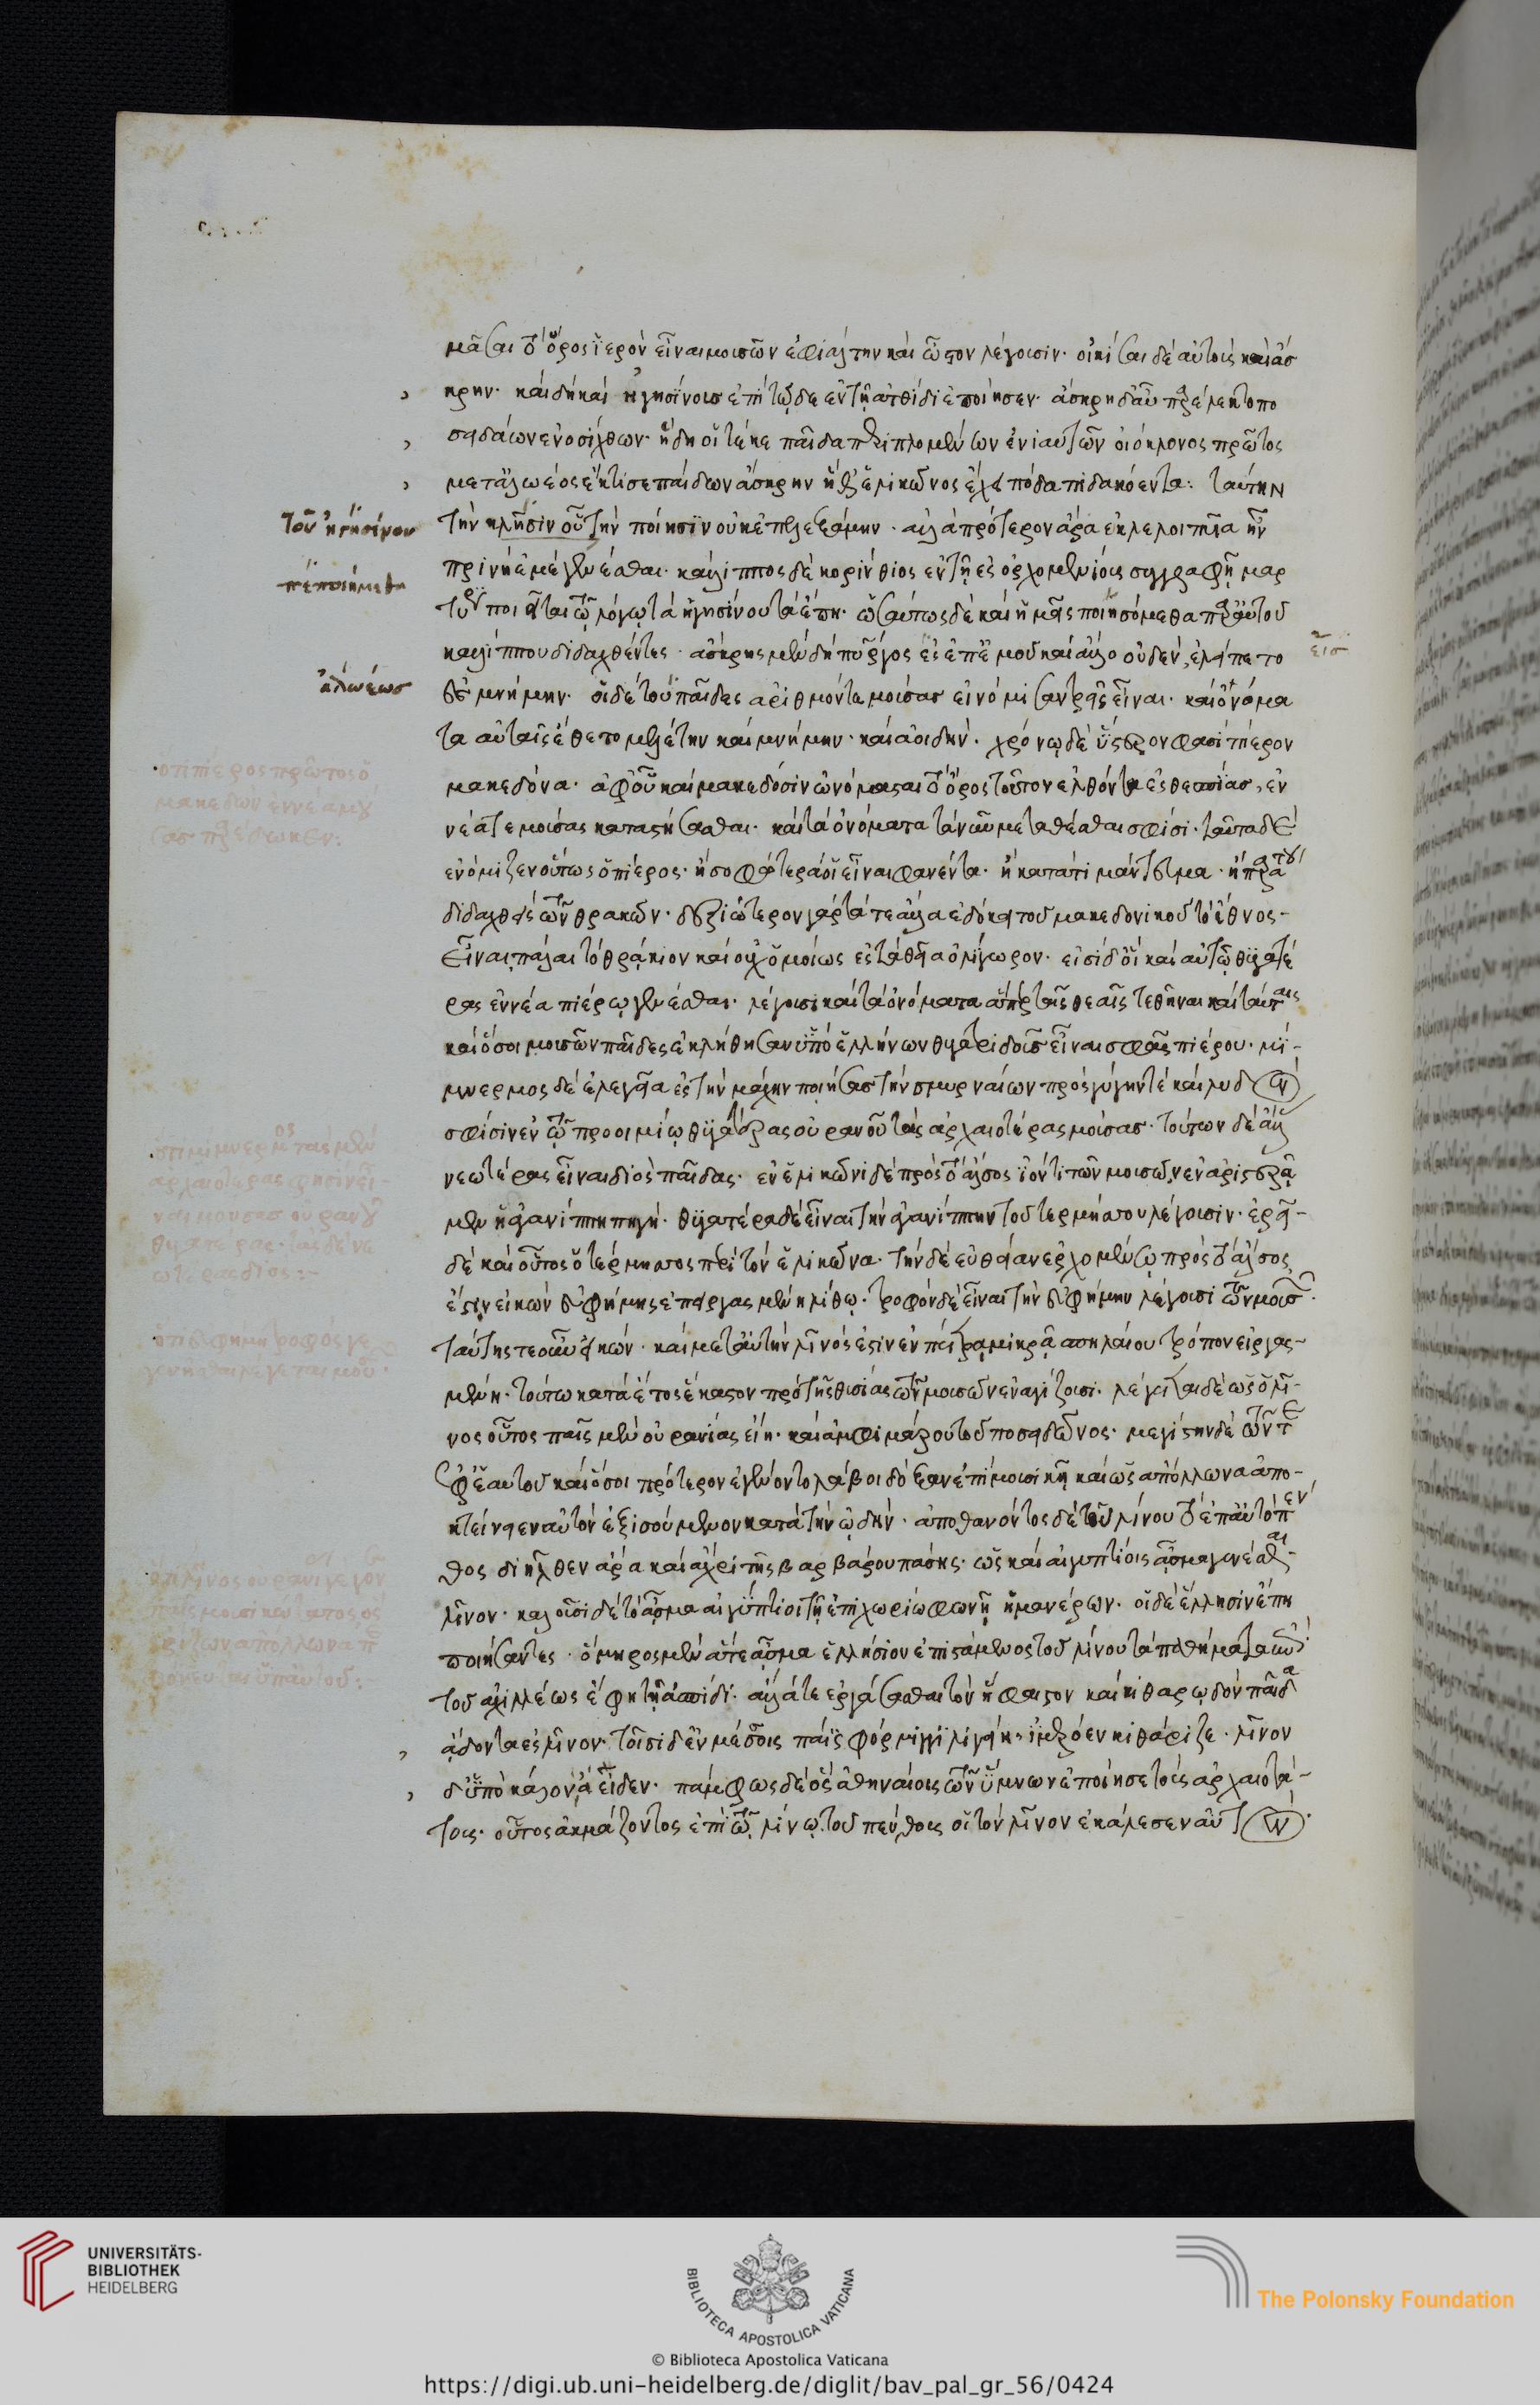 μᾶσαι τὸ ὄρος ἱερὸν εἶναι μουσῶν ἐφιάλτην καὶ ὦτον λέγουσιν· οἰκίσαι δὲ αὐτοὺς καὶ ἄσ
κρην· καὶ δὴ καὶ ἡγησίνους ἐπὶ τῷδε ἐν τῇ ἀτθίδι ἐποίησεν· ἄσκρη δ' αὖ παρέλεκτο πο
σειδάων ἐνοσίχθων· ἣ δή οἱ τέκε παῖδα περιπλομένων ἐνιαυτῶν οἴοκλον ὃς πρῶτος
μετ' ἀλωέος ἔκτισε παίδων ἄσκρην ἥ θ' ἑλικῶνος ἔχει πόδα πιδακόεντα: ταύτην
τοῦ ἡγησίνου
τὴν κλῆσιν οὖ τὴν ποίησιν οὐκ ἐπελεξάμην· ἀλλὰ πρότερον ἄρα ἐκλελοιπυῖα ἦν
πρὶν ἢ ἐμὲ γενέσθαι· κάλλιππος δὲ κορίνθιος ἐν τῇ ἐς ὀρχομενίους συγγραφῇ μαρ
τύρια ποιεῖται τῷ λόγῳ τὰ ἡγησίνου τὰ ἔπη· ὡσαύτως δὲ καὶ ἡμεῖς ποιησόμεθα παρ' αὐτοῦ
καλλίππου διδαχθέντες· ἄσκρης μὲν δὴ πύργος εἷς ἐπ' ἐμοῦ καὶ ἄλλο οὐδὲν, ἐλείπετο
εἷσ
ἀλωέωσ
ἐς μνήμην· οἱ δὲ τοῦ παῖδες ἀριθμόν τε μούσας ἐνόμισαν τρεῖς εἶναι· καὶ ὀνόμα
τα αὐταῖς ἔθετο μελέτην καὶ μνήμην· καὶ ἀοιδήν· χρόνῳ δὲ ὕστερόν φασι πίερον
μακεδόνα· ἀφ' οὗ καὶ μακεδόσιν ὠνόμασται τὸ ὄρος τοῦτον ἐλθόντα ἐς θεσπιάς, ἐν
νέα τε μούσας καταστήσασθαι· καὶ τὰ ὀνόματα τὰ νῦν μεταθέσθαι σφίσι· ταῦτα δὲ
ὅτι πίερος πρῶτος ὁ
μακεδὼν ἐννέα μού
σας παρέδωκεν:
ἐνόμιζεν οὕτως ὁ πίερος· ἢ σοφώτερά οἱ εἶναι φανέντα· ἢ κατά τι μάντευμα· ἢ παρά του
διδαχθεὶς τῶν θρακῶν· δεξιώτερον γὰρ τά τε ἄλλα ἐδόκει τοῦ μακεδονικοῦ τὸ ἔθνος
εἶναι πάλαι τὸ θρᾴκιον καὶ οὐχ ὁμοίως ἐς τὰ θεῖα ὀλίγωρον· εἰσὶ δ' οἳ καὶ αὐτῷ θυγατέ
ρας ἐννέα πιέρῳ γενέσθαι· λέγουσι καὶ τὰ ὀνόματα ἅπερ ταῖς θεαῖς τεθῆναι καὶ ταύταις
καὶ ὅσοι μουσῶν παῖδες ἐκλήθησαν ὑπὸ ἑλλήνων θυγατριδοῦς εἶναι σφᾶς πιέρου· μί
μνερμος δὲ ἐλεγεῖα ἐς τὴν μάχην ποιήσας τὴν σμυρναίων πρὸς γύγην τε καὶ λυδῶν
σφίσιν ἐν τῷ προοιμίῳ θυγατέρας οὐρανοῦ τὰς ἀρχαιοτέρας μούσας· τούτων δὲ ἄλλ
νεωτέρας εἶναι διὸς παῖδας· ἐν ἑλικῶνι δὲ πρὸς τὸ ἄλσος ἰόντι τῶν μουσῶν, ἐν ἀριστερᾷ
ὅτι μίμνερμος τὰς μὲν
ἀρχαιοτέρας φησὶν εἶ
ναι μούσας οὐρανοῦ
θυγατέρας· τὰς δὲ νε
ωτέρας διός:
μὲν ἡ ἀγανίππη πηγή· θυγατέρα δὲ εἶναι τὴν ἀγανίππην τοῦ τερμησσοῦ λέγουσιν· ῥεῖ
δὲ καὶ οὗτος ὁ τερμησσὸς περὶ τὸν ἑλικῶνα· τὴν δὲ εὐθεῖαν ἐρχομένῳ πρὸς τὸ ἄλσος
ἔστιν εἰκὼν εὐφήμης ἐπειργασμένη λίθῳ· τροφὸν δὲ εἶναι τὴν εὐφήμην λέγουσι τῶν μουσῶν·
ταύτης τε οὖν εἰκὼν· καὶ μετ' αὐτὴν λῖνός ἐστιν ἐν πέτρᾳ μικρᾷ σπηλαίου τρόπον εἰργασ
μένῃ· τούτῳ κατὰ ἔτος ἕκαστον πρὸ τῆς θυσίας τῶν μουσῶν ἐναγίζουσι· λέγεται δὲ ὡς ὁ λῖ
νος οὗτος παῖς μὲν οὐρανίας εἴη· καὶ ἀμφιμάρου τοῦ ποσειδῶνος· μεγίστην δὲ τῶν τε
ἐφ' ἑαυτοῦ καὶ ὅσοι πρότερον ἐγένοντο λάβοι δόξαν ἐπὶ μουσικῇ καὶ ὡς ἀπόλλων ἀπο
κτείνειεν αὐτὸν ἐξισούμενον κατὰ τὴν ᾠδήν· ἀποθανόντος δὲ τοῦ λίνου τὸ ἐπ' αὐτῷ πέν
θος διῆλθεν ἄρα καὶ ἄχρι τῆς βαρβάρου πάσης· ὡς καὶ αἰγυπτίοις ᾆσμα γενέσθαι
λῖνον· καλοῦσι δὲ τὸ ᾆσμα αἰγύπτιοι τῇ ἐπιχωρίῳ φωνῇ μανέρων· οἱ δὲ ἕλλησιν ἔπη
ποιήσαντες· ὅμηρος μὲν ἅτε ᾆσμα ἑλλήσιον ἐπιστάμενος τοῦ λίνου τὰ παθήματα
τοῦ ἀχιλλέως ἔφη τῇ ἀσπίδι· ἄλλα τε ἐργάσασθαι τὸν ἥφαιστον καὶ κιθαρῳδὸν παῖδα
ᾄδοντα ἐς λῖνον· τοῖσι δ' ἐν μέσσοις πάϊς φόρμιγγι λιγείῃ, ἱμερόεν κιθάριζε· λῖνον
δ' ὑπὸ καλὸν ἄειδεν· πάμφως δὲ ὃς ἀθηναίοις τῶν ὕμνων ἐποίησε τοὺς ἀρχαιοτά
τους· οὗτος ἀκμάζοντος ἐπὶ τῷ λίνῳ τοῦ πένθους οἶτον λῖνον ἐκάλεσεν αὐτὸν·
UNIVERSITÄTS-
BIBLIOTHEK
HEIDELBERG
BIBLIOTECA APOSTOLICA VATICANA
The Polonsky Foundation
© Biblioteca Apostolica Vaticana
https://digi.ub.uni-heidelberg.de/diglit/bav_pal_gr_56/0424